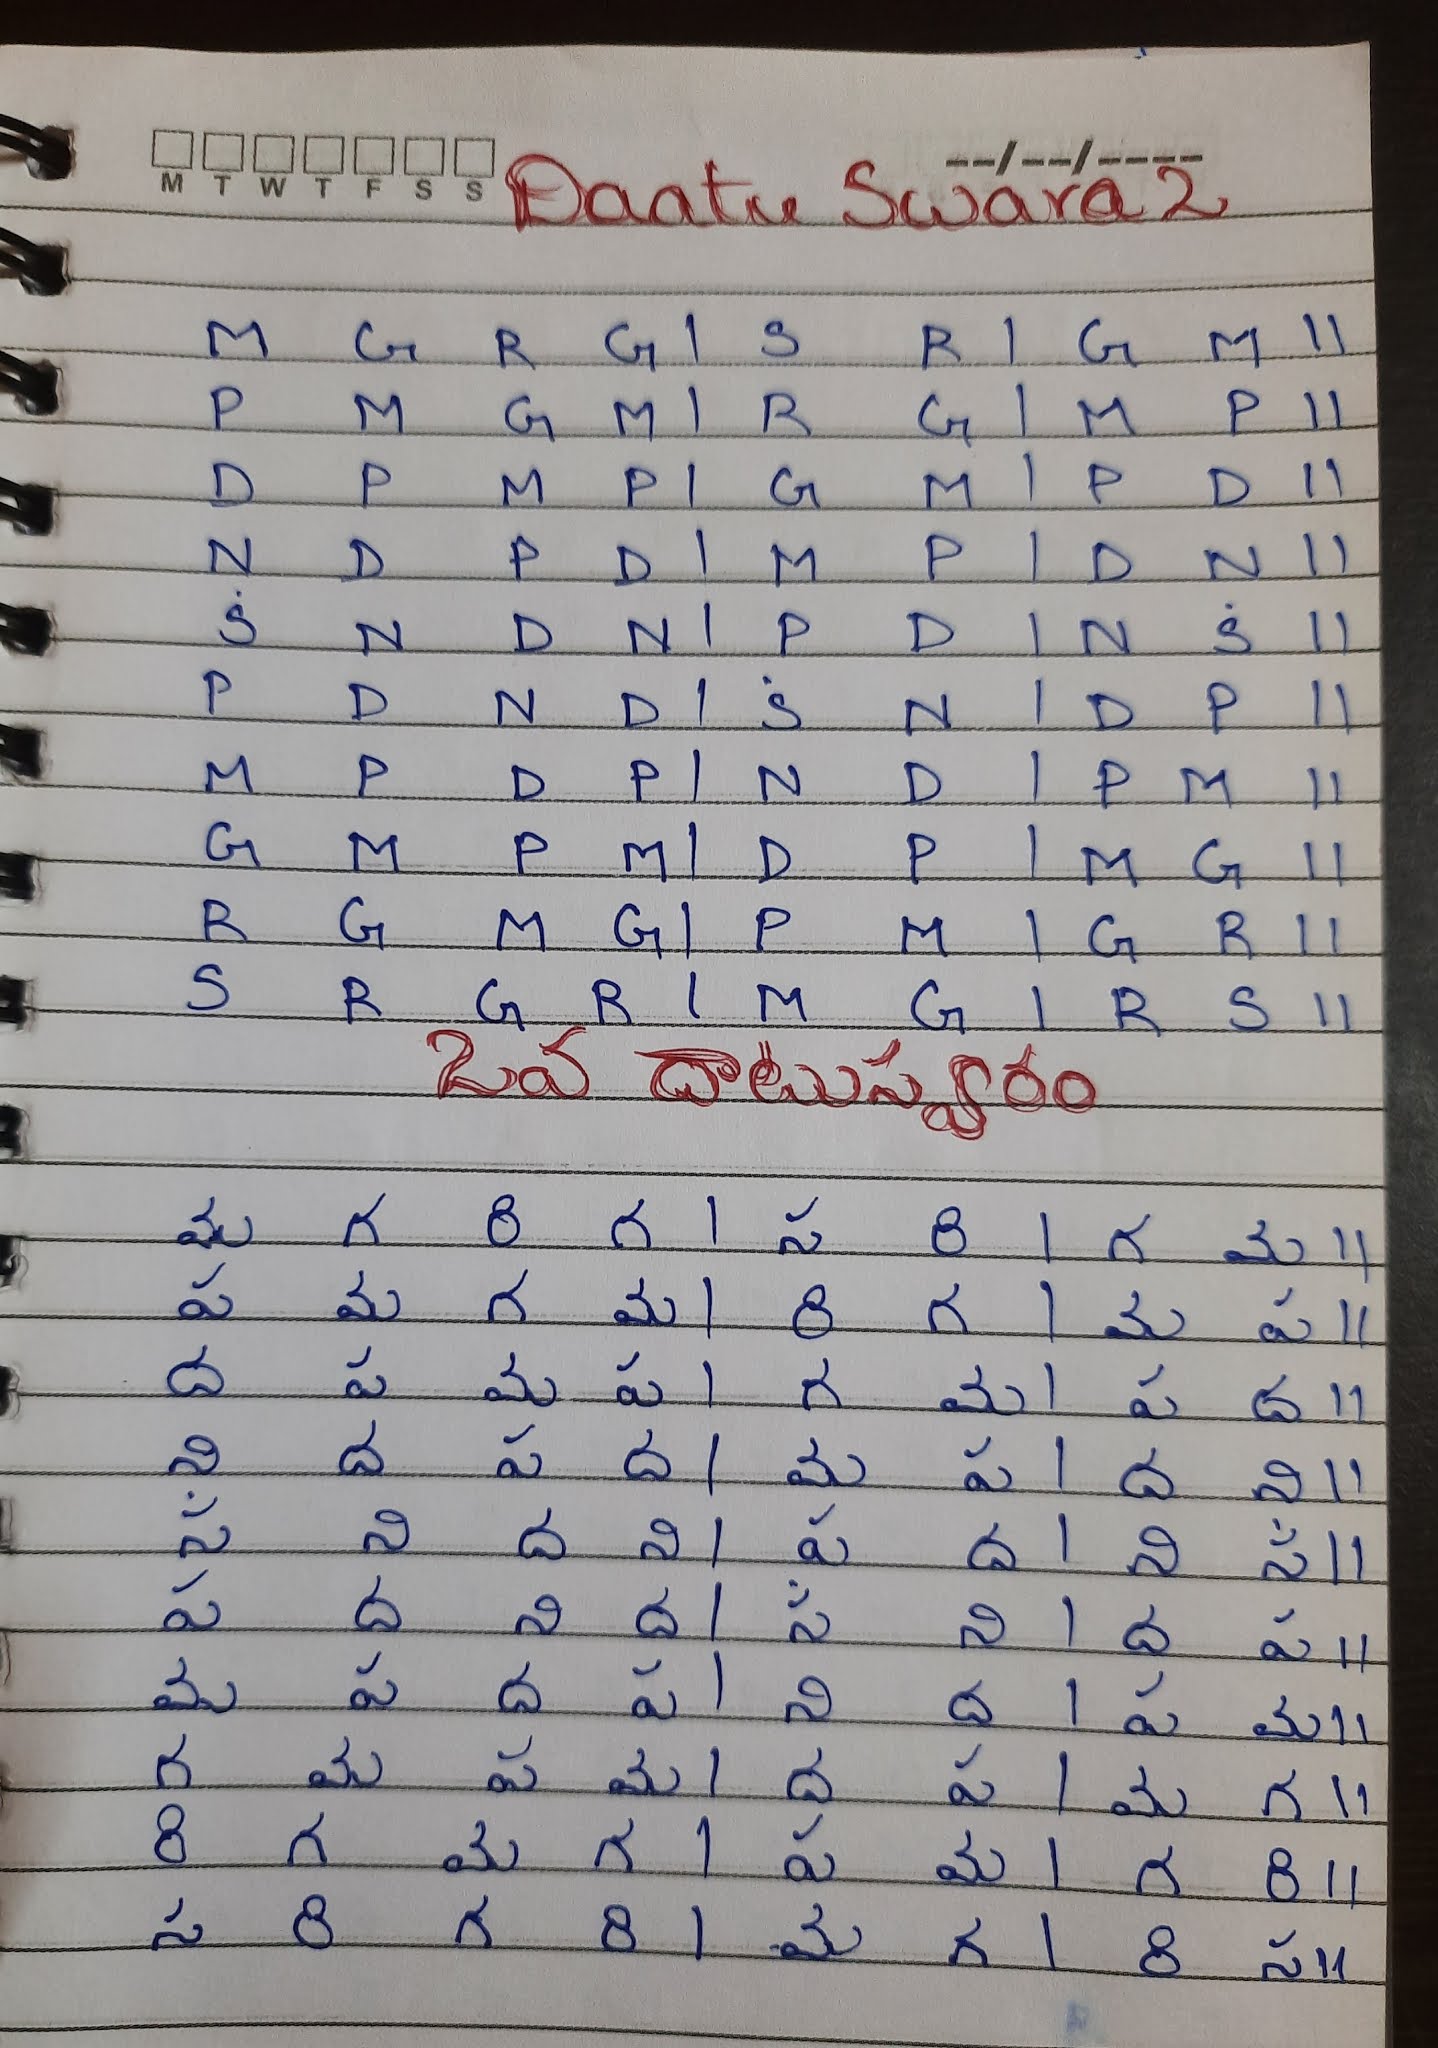 M T W T F S S Daatu Swara 2 --/--/----
M G R G | S R | G M ||
P M G M | R G | M P ||
D P M P | G M | P D ||
N D P D | M P | D N ||
Ṡ N D N | P D | N Ṡ ||
P D N D | Ṡ N | D P ||
M P D P | N D | P M ||
G M P M | D P | M G ||
R G M G | P M | G R ||
S R G R | M G | R S ||
2వ దాటుస్వరం
మ గ రి గ | స రి | గ మ ||
ప మ గ మ | రి గ | మ ప ||
ద ప మ ప | గ మ | ప ద ||
ని ద ప ద | మ ప | ద ని ||
స̇ ని ద ని | ప ద | ని స̇ ||
ప ద ని ద | స̇ ని | ద ప ||
మ ప ద ప | ని ద | ప మ ||
గ మ ప మ | ద ప | మ గ ||
రి గ మ గ | ప మ | గ రి ||
స రి గ రి | మ గ | రి స ||